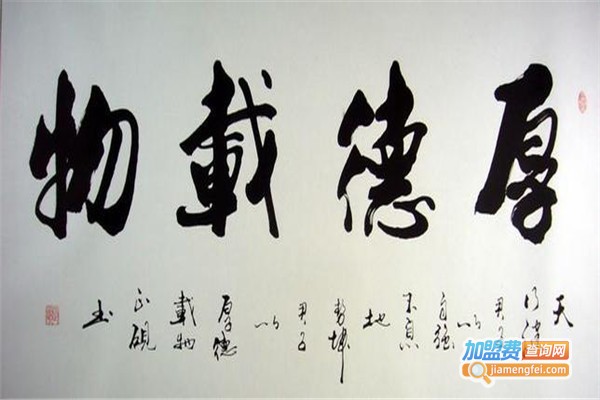 厚德載物
天
行健
君子
以
自強
不息
地
勢坤
君子
以
厚德
載物
正硯
书
加盟费查询网
jiamengfei.com